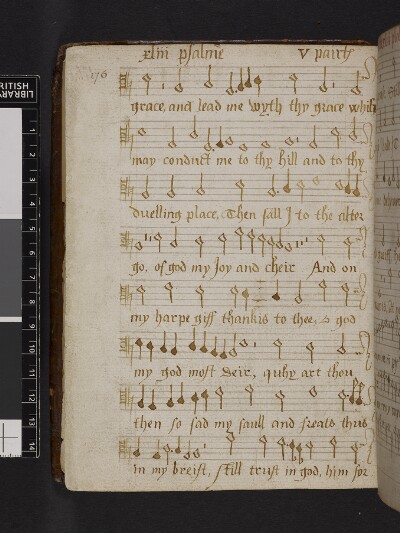 xliii psalme V pairt
176
grace, and lead me wyth thy grace whilk
may conduct me to thy hill and to thy
duelling place, Then sall J to the alter
go, of god my Joy and cheir And on
my harpe giff thankis to thee, o god
my god most deir, quhy art thou
then so sad my saull and freats thus
in my breist, still trust in god, him for
BRITISH
LIBRARY
1
2
3
4
5
6
7
8
9
10
11
12
13
14